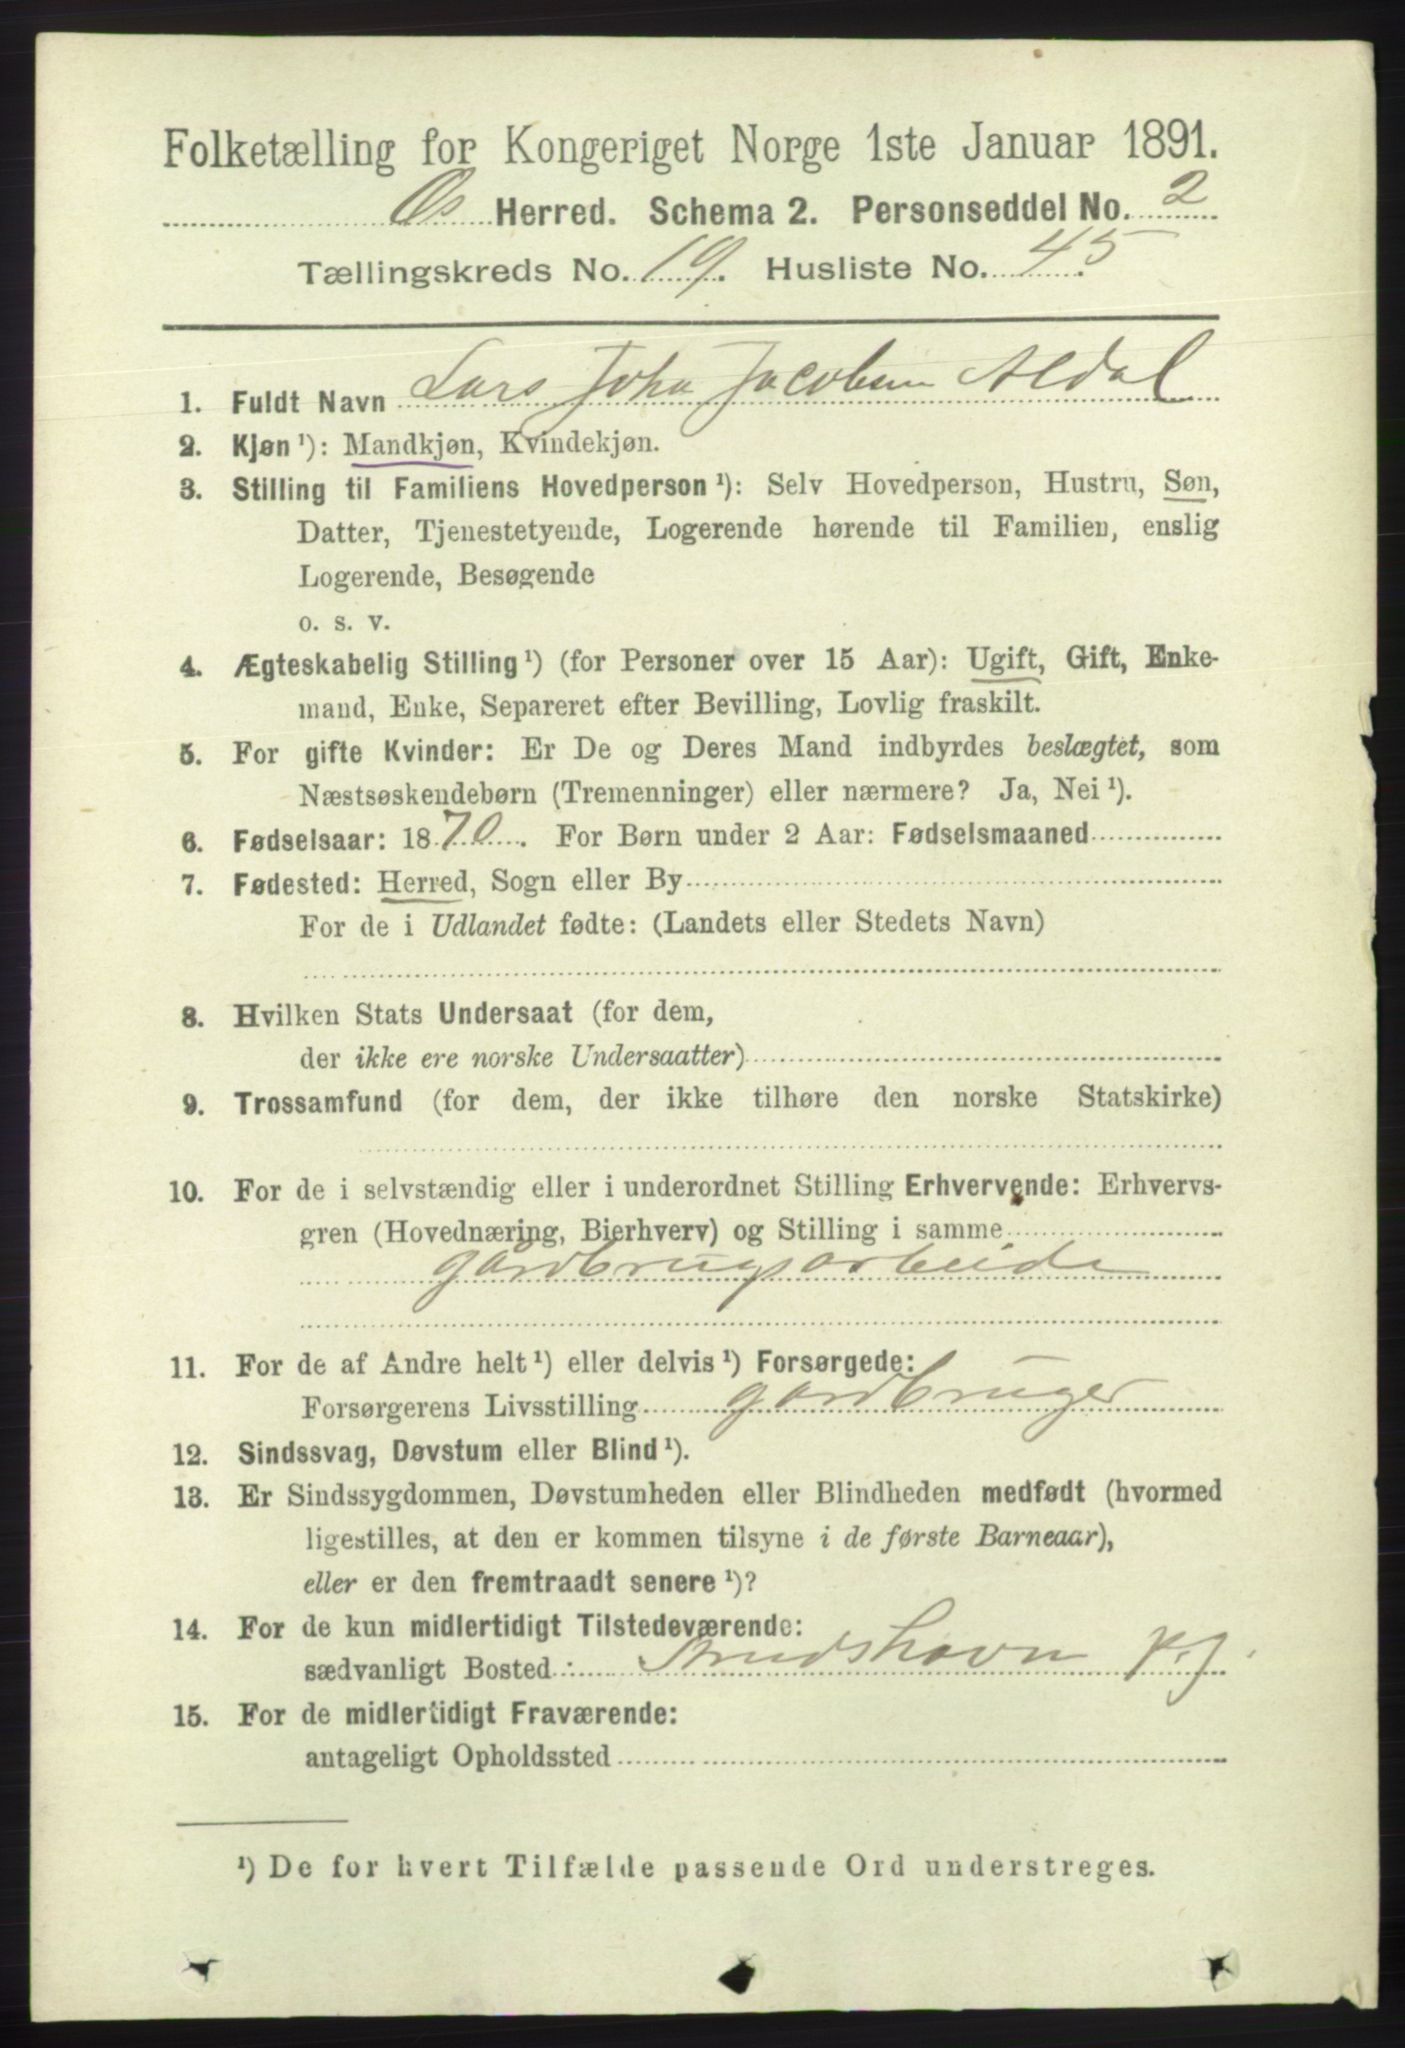 Folketælling for Kongeriget Norge 1ste Januar 1891.
Os Herred. Schema 2. Personseddel No. 2
Tællingskreds No. 19. Husliste No. 45.
1. Fuldt Navn Lars Joha Jacobsen Aldal
2. Kjøn ¹): Mandkjøn, Kvindekjøn.
3. Stilling til Familiens Hovedperson ¹): Selv Hovedperson, Hustru, Søn,
Datter, Tjenestetyende, Logerende hørende til Familien, enslig
Logerende, Besøgende
o. s. v.
4. Ægteskabelig Stilling ¹) (for Personer over 15 Aar): Ugift, Gift, Enke-
mand, Enke, Separeret efter Bevilling, Lovlig fraskilt.
5. For gifte Kvinder: Er De og Deres Mand indbyrdes beslægtet, som
Næstsøskendebørn (Tremenninger) eller nærmere? Ja, Nei ¹).
6. Fødselsaar: 1870. For Børn under 2 Aar: Fødselsmaaned
7. Fødested: Herred, Sogn eller By
For de i Udlandet fødte: (Landets eller Stedets Navn)
8. Hvilken Stats Undersaat (for dem,
der ikke ere norske Undersaatter)
9. Trossamfund (for dem, der ikke tilhøre den norske Statskirke)
10. For de i selvstændig eller i underordnet Stilling Erhvervende: Erhvervs-
gren (Hovednæring, Bierhverv) og Stilling i samme
gårdbrugsarbeide
11. For de af Andre helt ¹) eller delvis ¹) Forsørgede:
Forsørgerens Livsstilling gardbruger
12. Sindssvag, Døvstum eller Blind ¹).
13. Er Sindssygdommen, Døvstumheden eller Blindheden medfødt (hvormed
ligestilles, at den er kommen tilsyne i de første Barneaar),
eller er den fremtraadt senere ¹)?
14. For de kun midlertidigt Tilstedeværende:
sædvanligt Bosted:
15. For de midlertidigt Fraværende:
antageligt Opholdssted
¹) De for hvert Tilfælde passende Ord understreges.